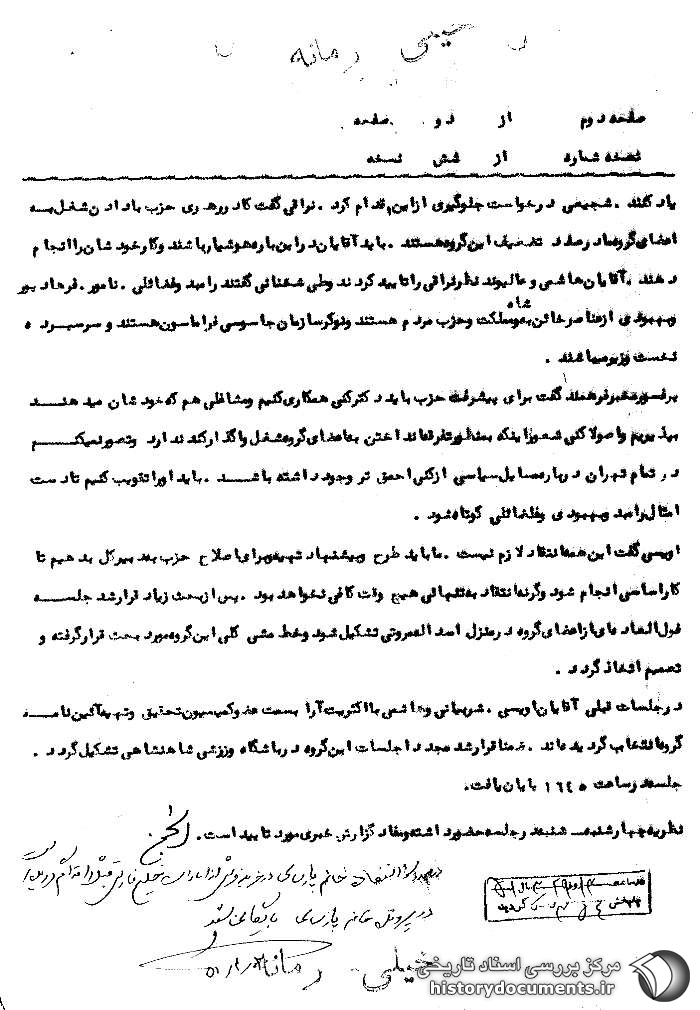 خیلی محرمانه
صفحه دوم از دو صفحه
نسخه شماره از شش نسخه
یاد کنند . شجیعی درخواست جلوگیری از این اقدام کرد . نراقی گفت کادر رهبری حزب با دادن شغل به
اعضای گروه در صدد تضعیف این گروه هستند . باید آقایان در این باره هوشیار باشند و کار خودشان را انجام
دهند . آقایان هاشمی و عالیوند نظر نراقی را تایید کردند وطی سخنانی گفتند رامبد وفضائلی . نامور . فرهادپور
وبهبودی از عناصر خائن به شاه ومملکت وحزب مردم هستند ونوکر سازمان جاسوسی فراماسون هستند و سرسپرده
نخست وزیر میباشند .
پرفسور مخبر فرهمند گفت برای پیشرفت حزب باید دکتر کنی همکاری کنیم ومشاغلی هم که خودشان میدهند
بپذیریم واصولا کنی شعور اینکه بمنظور تفرقه انداختن به اعضای گروه شغل واگذار کند ندارد وتصور نمیکنم
در تمام تهران درباره مسایل سیاسی از کنی احمق تر وجود داشته باشد . باید اورا تقویت کنیم تا دست
امثال رامبد وبهبودی وفضائلی کوتاه شود .
اویسی گفت این همه انتقاد لازم نیست . ما باید طرح وپیشنهاد تهیه وبرای اصلاح حزب بدبیرکل بدهیم تا
کار اساسی انجام شود وگرنه انتقاد به تنهائی هیچ وقت کافی نخواهد بود . پس از بحث زیاد قرار شد جلسه
فوق العاده ای از اعضای گروه در منزل اسداله مروتی تشکیل شود وخط مشی کلی این گروه مورد بحث قرار گرفته و
تصمیم اتخاذ گردد .
در جلسات قبلی آقایان اویسی . شربیانی وهاشمی با اکثریت آرا بسمت عضو کمیسیون تحقیق وتهیه آئین نامه
گروه انتخاب گردیده اند . ضمنا قرار شد مجددا جلسات این گروه در باشگاه ورزشی شاهنشاهی تشکیل گردد .
جلسه در ساعت ۱۶۴۵ پایان یافت .
نظریه چهارشنبه . شنبه در جلسه حضور داشته ومفاد گزارش خبری مورد تایید است .
خانم پارسای در
در پرونده خانم پارسای بایگانی شود
خیلی محرمانه
مرکز بررسی اسناد تاریخی
historydocuments.ir